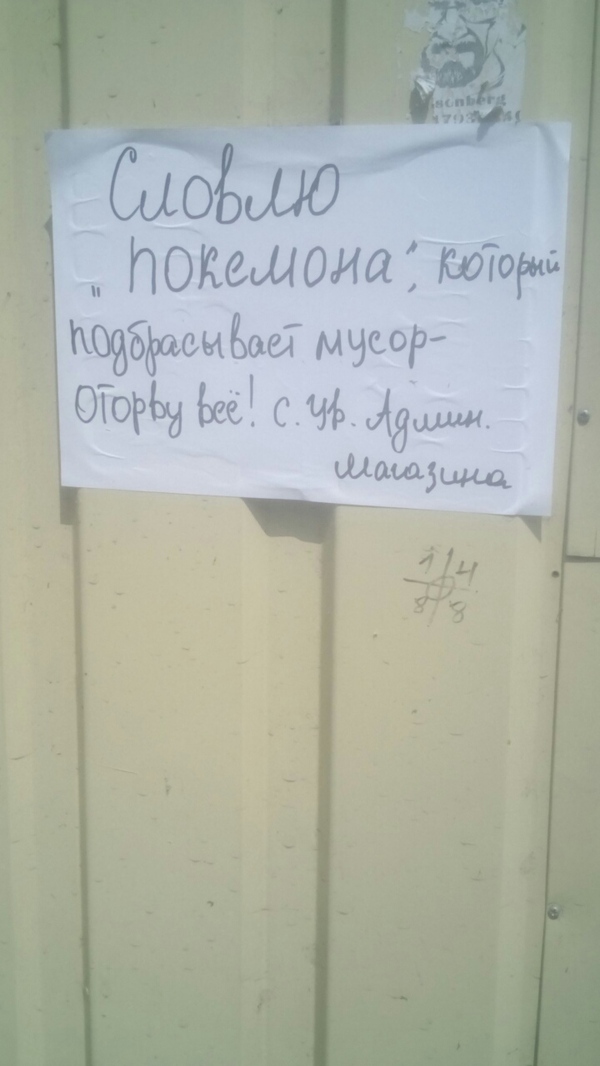 Словлю
„покемона", который
подбрасывает мусор-
Оторву всё! с. ув. Админ.
магазина
1 4
8 8